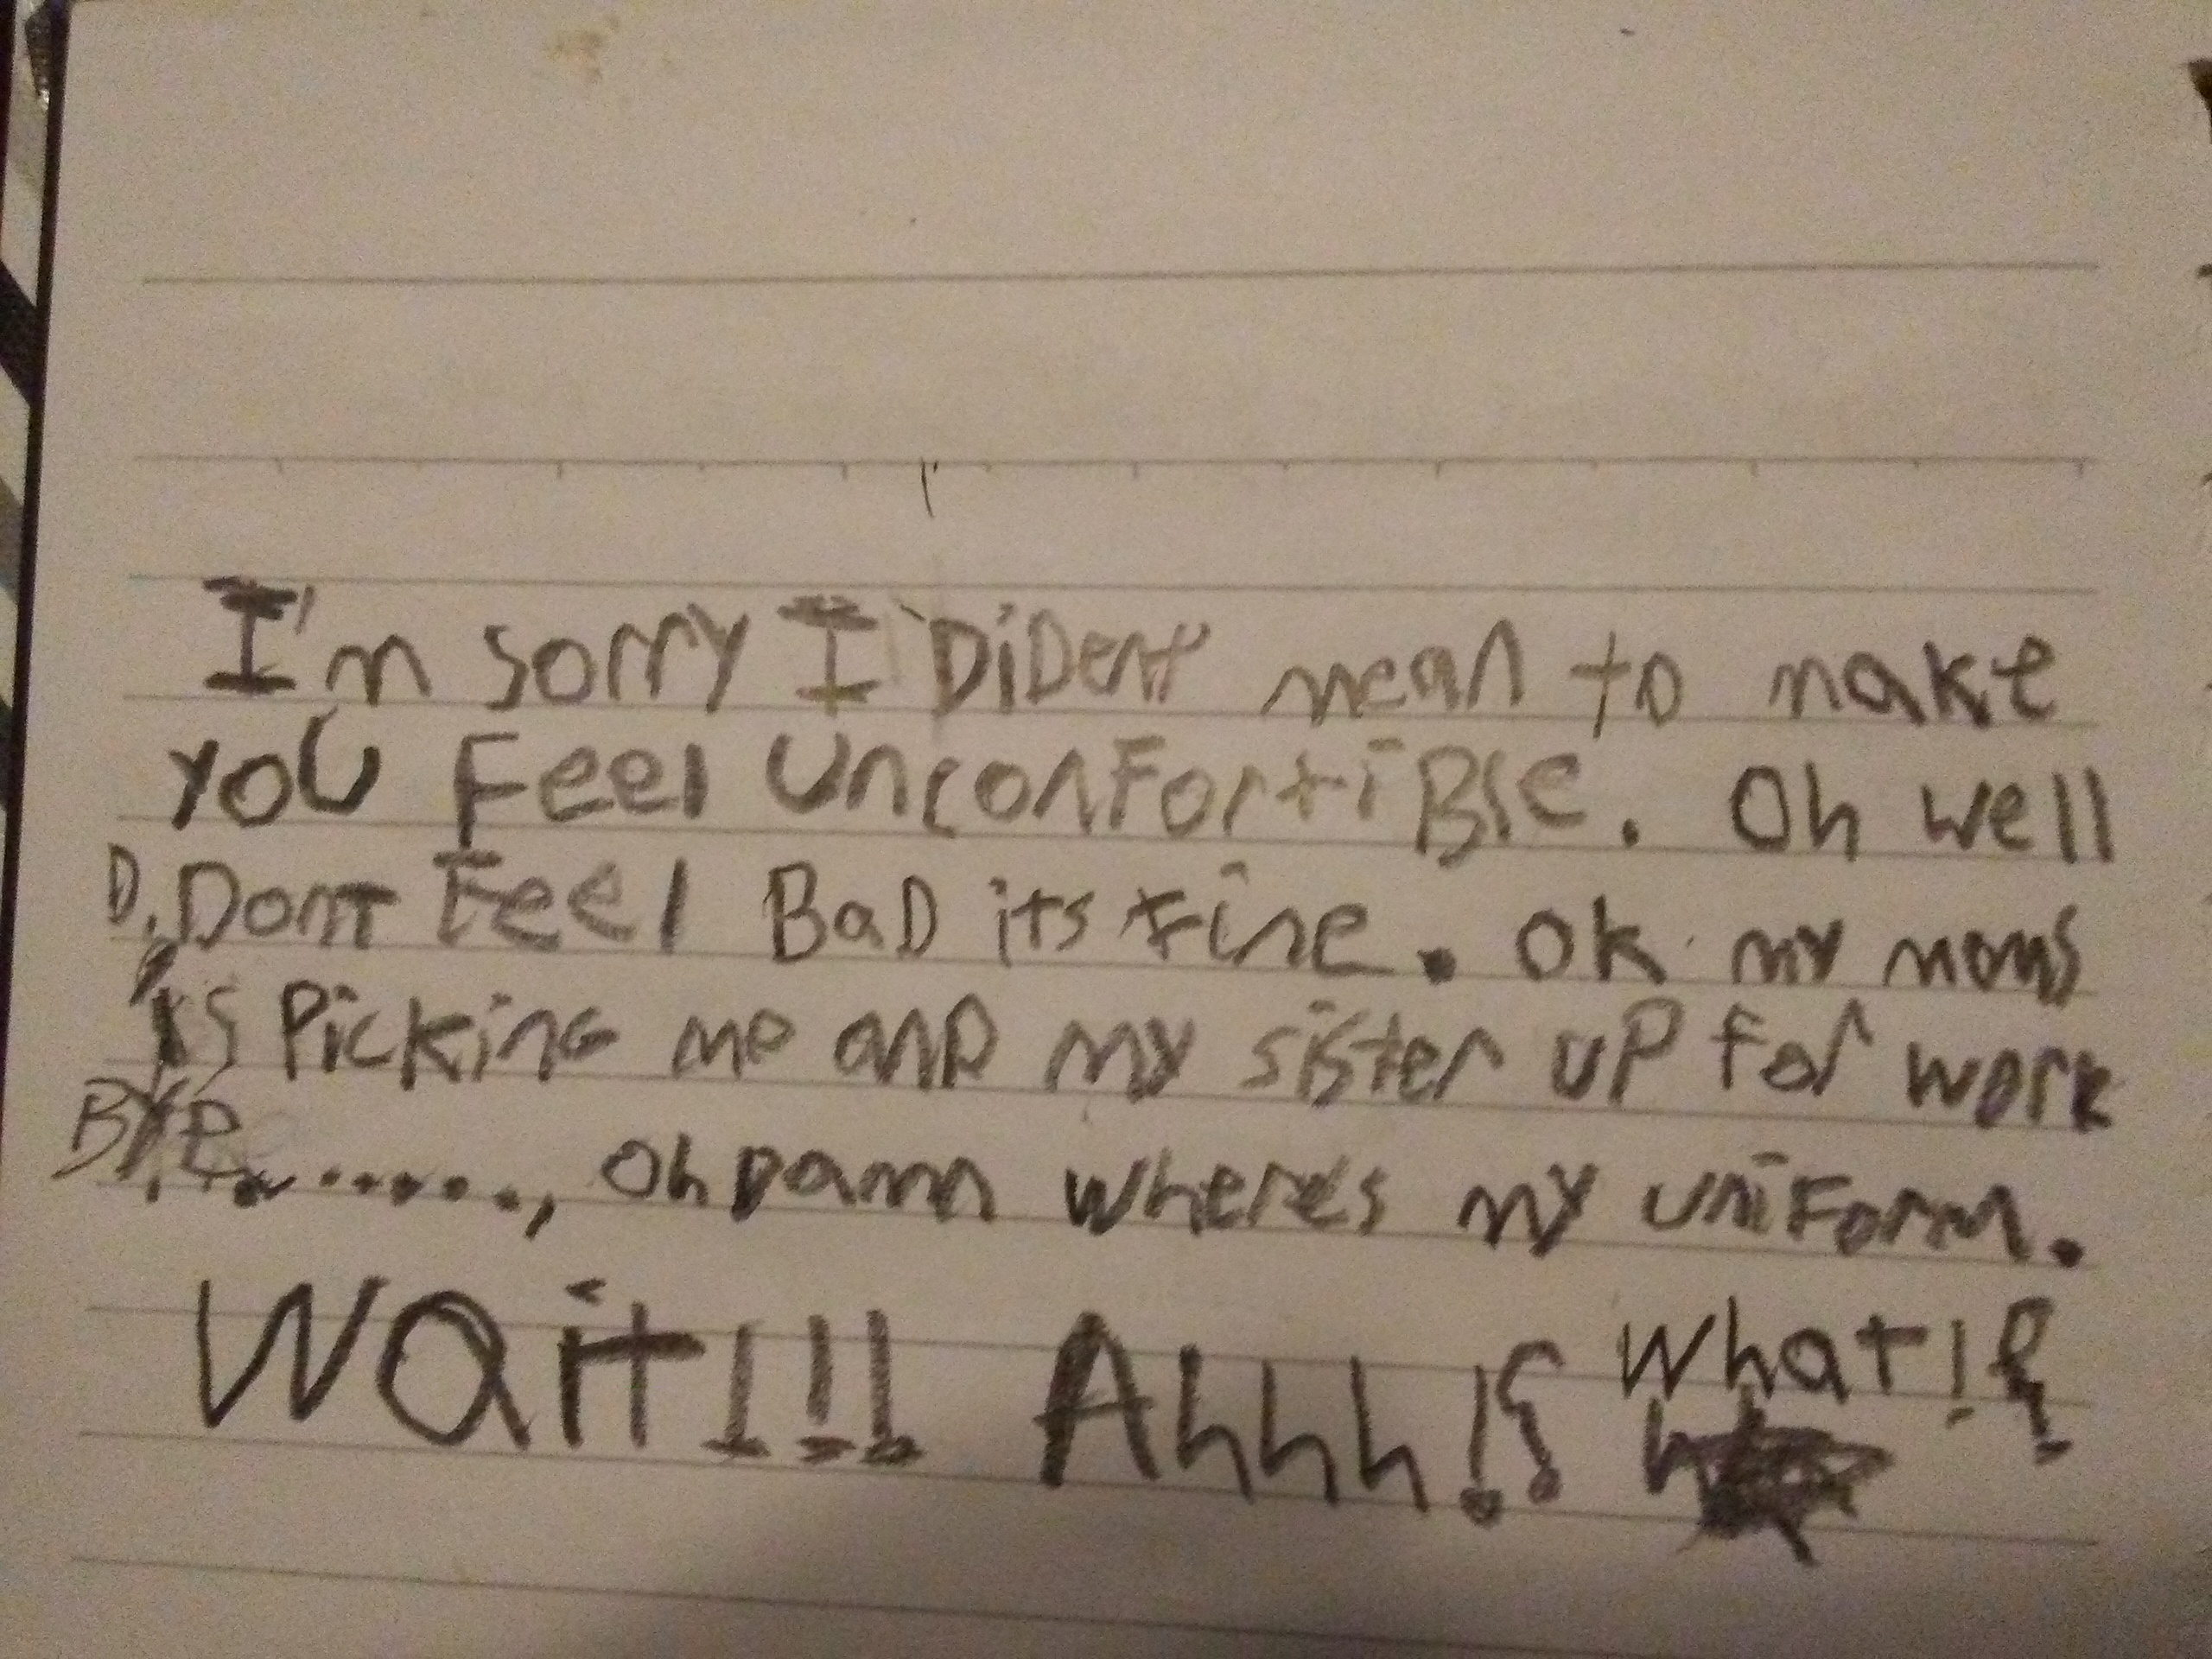 I'm sorry I DiDent mean to make
you Feel UnconFortiBle. Oh well
D. Dont Feel BaD its fine. Ok my moms
is Picking me anD my sister uP for work
BYE........, Oh Damn where's my uniForm.
Wait!!! Ahhh!? What!?